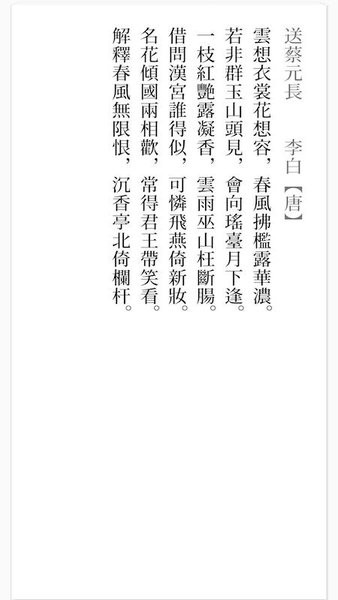 送蔡元長　李白【唐】
雲想衣裳花想容，春風拂檻露華濃。
若非群玉山頭見，會向瑤臺月下逢。
一枝紅艷露凝香，雲雨巫山枉斷腸。
借問漢宮誰得似，可憐飛燕倚新妝。
名花傾國兩相歡，常得君王帶笑看。
解釋春風無限恨，沉香亭北倚欄杆。